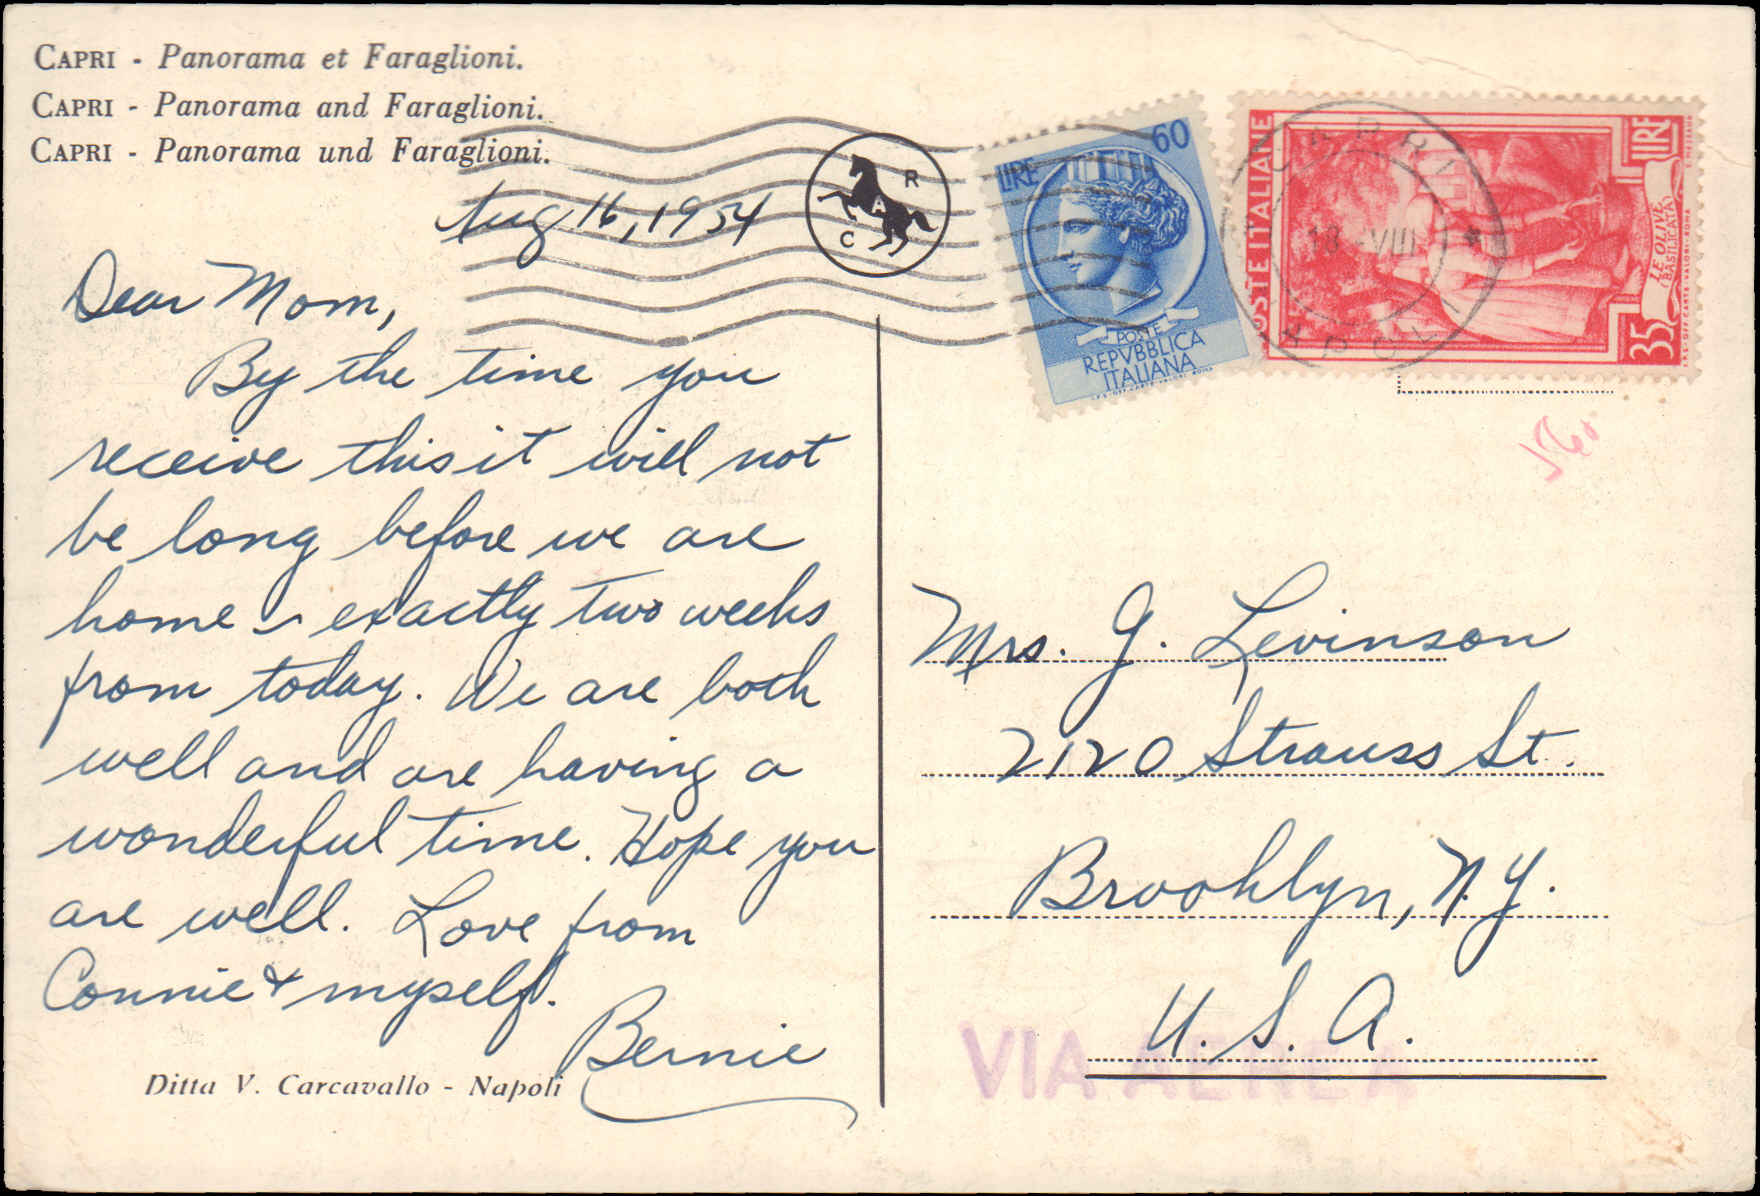 CAPRI - Panorama et Faraglioni.
CAPRI - Panorama and Faraglioni.
CAPRI - Panorama und Faraglioni.
Aug 16, 1954
Dear Mom,
By the time you
receive this it will not
be long before we are
home - exactly two weeks
from today. We are both
well and are having a
wonderful time. Hope you
are well. Love from
Connie & myself.
Bernie
Ditta V. Carcavallo - Napoli
R
A
C
LIRE 60
ITALIA
POSTE
REPVBBLICA
ITALIANA
POSTE ITALIANE
LIRE
35
LE OLIVE
(BASILICATA)
CAPRI
18 - VIII
NAPOLI
Mrs. G. Levinson
2120 Strauss St.
Brooklyn, N.Y.
U.S.A.
VIA AEREA